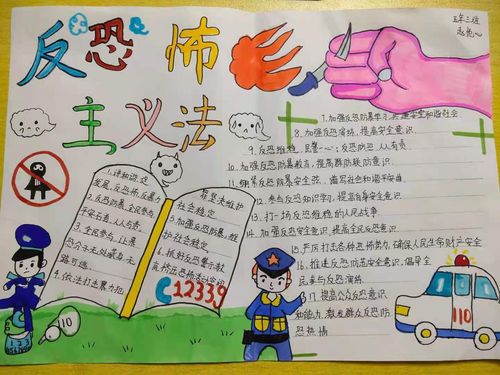 反恐怖
主义法
五年三班
1.谋和平促
发展,反恐怖
2.反恐防暴全民参与
平安与君,人人有责
3.全民参与,让暴
恐分子无处藏身,无
路可逃
4.依法打击暴力犯
社会稳定
5.加强反恐防暴,维
护社会稳定
6.抓好反恐警示教
12339
7.加强反恐防暴学习,共建安全和谐社会
8.加强反恐演练,提高安全意识
9.反恐维稳,民警一心;反恐防恐,人人有责
10.加强反恐防暴教育,提高群防联防意识
11.绷紧反恐防暴安全弦,谱写社会和谐平安曲
12.参与反恐知识学习,提高自身安全意识
13.打一场反恐维稳的人民战争
14.加强反恐安全意识,提高全民反恐意识
15.严厉打击各种恐怖势力,确保人民生命财产安全
16.推进反恐防范安全意识,倡导全
民参与反恐演练
17.提高公众反恐意识
和能力,激发群众反恐防
恐热情
110
110